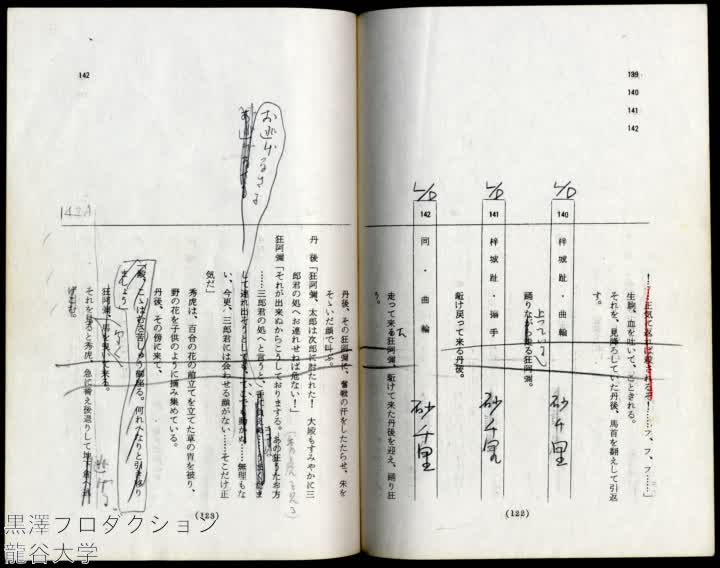 139
140
141
142
！……正気に返れば殺されるぞ！……フ、フ、フ……」
生駒、血を吐いて、こときれる。
それを、見降ろしていた丹後、馬首を翻えして引返
す。
L/D
140 梓城趾・曲輪
砂千里
踊りながら走る狂阿彌。
L/D
141 梓城趾・搦手
砂千里
駈け戻って来る丹後。
L/D
142 同・曲輪
砂千里
走って来る狂阿彌、駈けて来た丹後を迎え、踊り狂
う。
(122)
142
丹後、その狂阿彌に、奮戦の汗をしたたらせ、朱を
そゝいだ顔で叫ぶ。
丹　後「狂阿彌、太郎は次郎に討たれた！　大殿もすみやかに三
郎君の処へお連れせねば危ない！」
狂阿彌「それが出来ぬからこうしておりまする。あの狂うたお方
……三郎君の処へと言うと、
して連れ出そうとしても、てでも動かぬ……無理もな
い、今更、三郎君には会わせる顔がない……そこだけ正
気だ」
秀虎は、百合の花の前立てを立てた草の冑を被り、
野の花を子供のように摘み集めている。
丹後、その傍に来て、
狂阿彌、馬を曳いて来る。
それを見ると秀虎、急に答え後退りして地下倉へ逃
げこむ。
お逃げなさる
142A
逃げる
(123)
黒澤プロダクション
龍谷大学